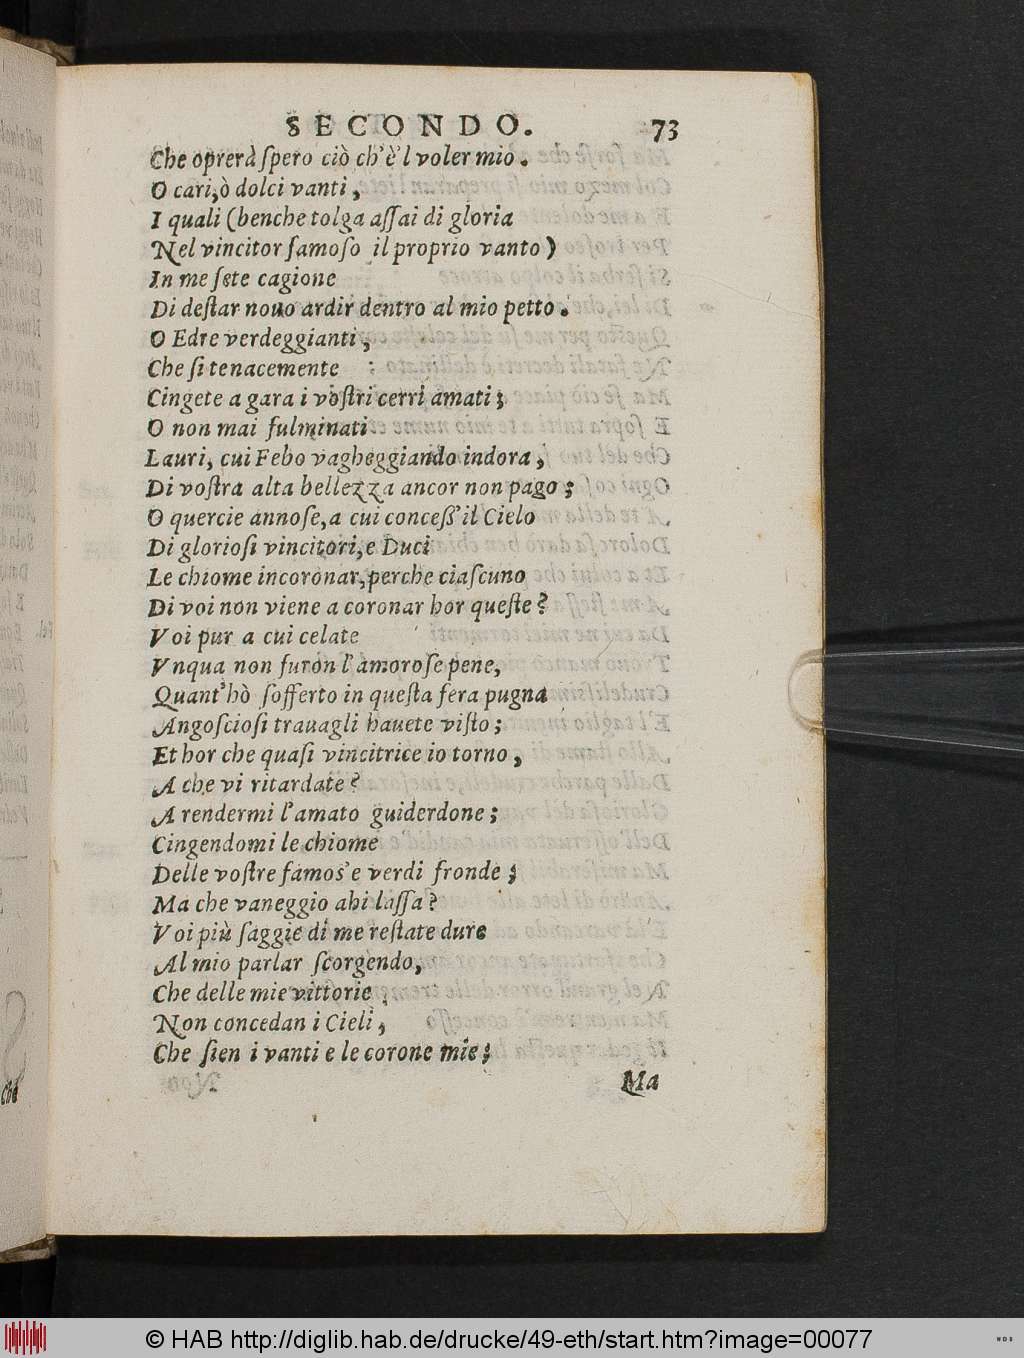 SECONDO. 73
Che oprerà ſpero ciò ch'è'l voler mio.
O cari,ò dolci vanti,
I quali (benche tolga aſſai di gloria
Nel vincitor famoſo il proprio vanto)
In me ſete cagione
Di deſtar nouo ardir dentro al mio petto.
O Edre verdeggianti,
Che ſi tenacemente
Cingete a gara i voſtri cerri amati;
O non mai fulminati
Lauri, cui Febo vagheggiando indora,
Di voſtra alta bellezza ancor non pago;
O quercie annoſe,a cui conceſſ'il Cielo
Di glorioſi vincitori,e Duci
Le chiome incoronar,perche ciaſcuno
Di voi non viene a coronar hor queſte?
Voi pur a cui celate
Vnqua non furon l'amoroſe pene,
Quant'hò ſofferto in queſta fera pugna
Angoſcioſi trauagli hauete viſto;
Et hor che quaſi vincitrice io torno,
A che vi ritardate?
A rendermi l'amato guiderdone;
Cingendomi le chiome
Delle voſtre famoſ'e verdi fronde;
Ma che vaneggio ahi laſſa?
Voi più ſaggie di me reſtate dure
Al mio parlar ſcorgendo,
Che delle mie vittorie
Non concedan i Cieli,
Che ſien i vanti e le corone mie;
Ma
Che
© HAB http://diglib.hab.de/drucke/49-eth/start.htm?image=00077